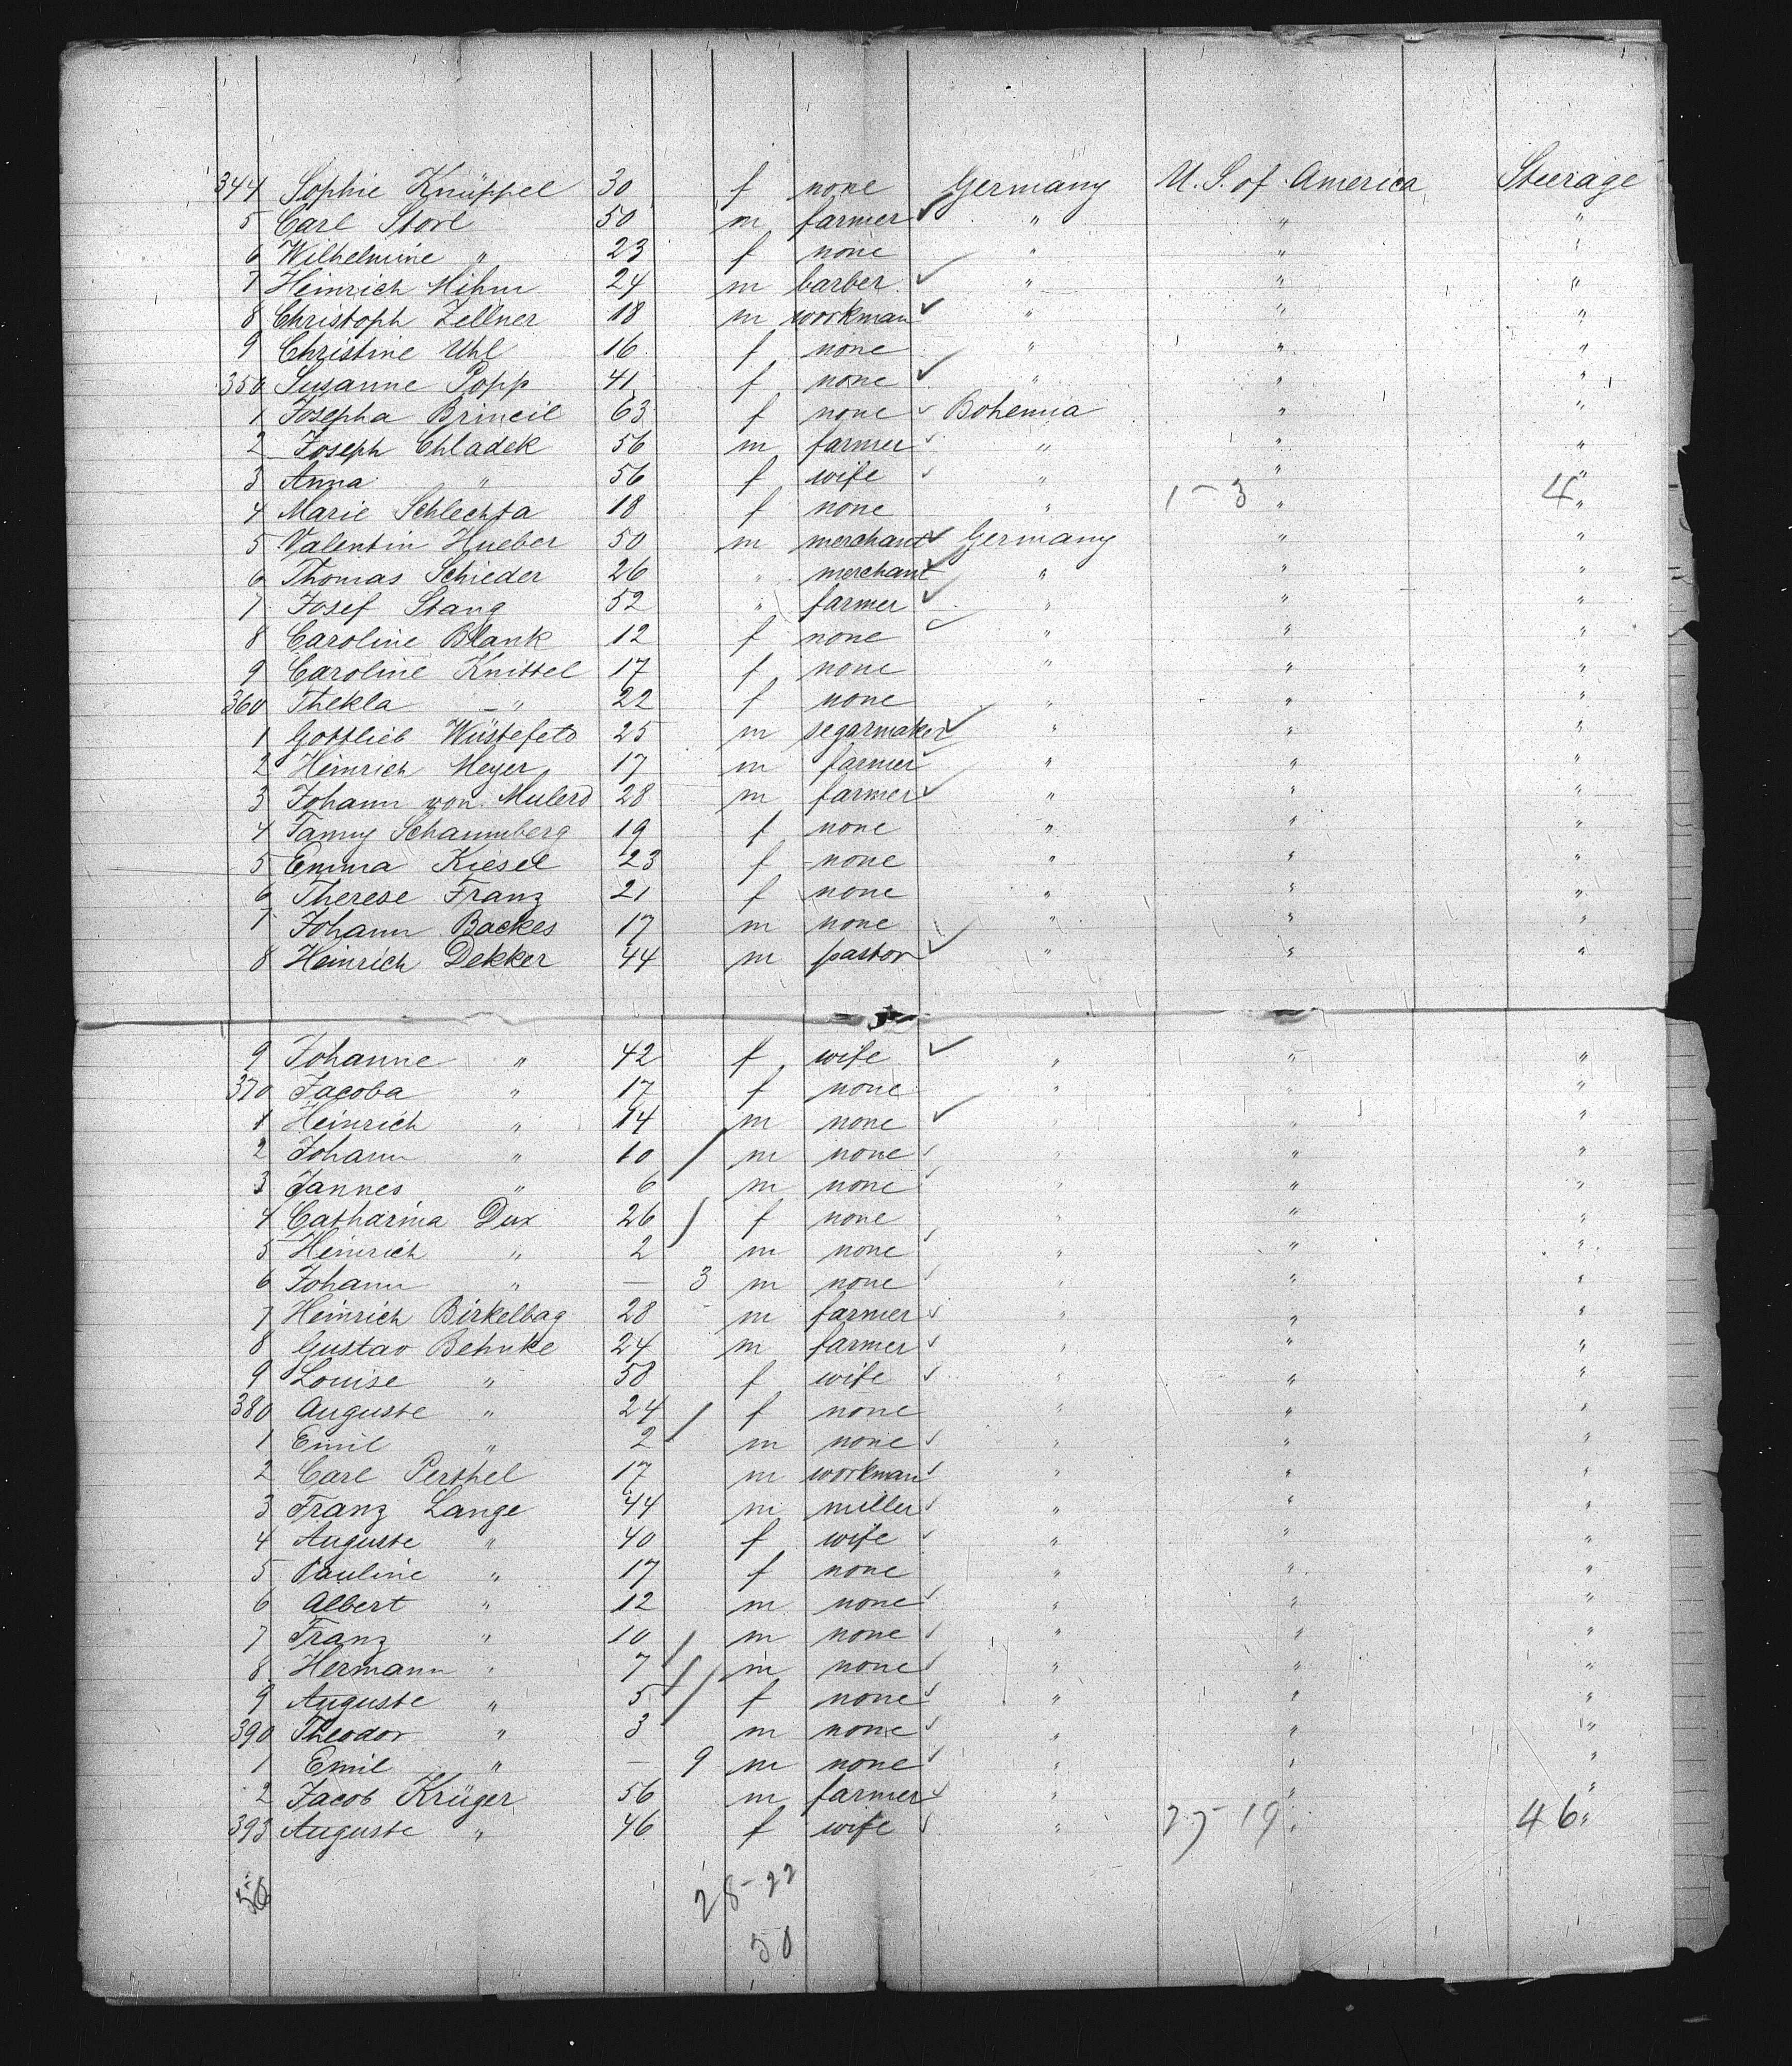 344 Sophie Knüppel 30 f none Germany U. S. of America Steerage
5 Carl Storl 50 m farmer " " "
6 Wilhelmine " 23 f none " " "
7 Heinrich Mihm 24 m barber " " "
8 Christoph Zellner 18 m workman " " "
9 Christine Uhl 16 f none " " "
350 Susanne Popp 41 f none " " "
1 Josepha Brincil 63 f none Bohemia " "
2 Joseph Chladek 56 m farmer " " "
3 Anna " 56 f wife " " "
4 Marie Schlechta 18 f none " 1-3 " 4 "
5 Valentin Hueber 50 m merchant Germany " "
6 Thomas Schieder 26 " merchant " " "
7 Josef Stang 52 " farmer " " "
8 Caroline Blank 12 f none " " "
9 Caroline Knittel 17 f none " " "
360 Thekla " 22 f none " " "
1 Gottlieb Wüstefeld 25 m segarmaker " " "
2 Heinrich Meyer 17 m farmer " " "
3 Johann von Mulerd 28 m farmer " " "
4 Fanny Schaumberg 19 f none " " "
5 Emma Kiesel 23 f none " " "
6 Therese Franz 21 f none " " "
7 Johann Backes 17 m none " " "
8 Heinrich Dekker 44 m pastor " " "
9 Johanne " 42 f wife " " "
370 Jacoba " 17 f none " " "
1 Heinrich " 14 m none " " "
2 Johann " 10 m none " " "
3 Jannes " 6 m none " " "
4 Catharina Dux 26 f none " " "
5 Heinrich " 2 m none " " "
6 Johann " — 3 m none " " "
7 Heinrich Birkelbag 28 m farmer " " "
8 Gustav Behnke 24 m farmer " " "
9 Louise " 58 f wife " " "
380 Auguste " 24 f none " " "
1 Emil " 2 m none " " "
2 Carl Perthel 17 m workman " " "
3 Franz Lange 44 m miller " " "
4 Auguste " 40 f wife " " "
5 Pauline " 17 f none " " "
6 Albert " 12 m none " " "
7 Franz " 10 m none " " "
8 Hermann " 7 m none " " "
9 Auguste " 5 f none " " "
390 Theodor " 3 m none " " "
1 Emil " — 9 m none " " "
2 Jacob Krüger 56 m farmer " " "
393 Auguste " 46 f wife " 27-19 " 46 "
50 28-22
50